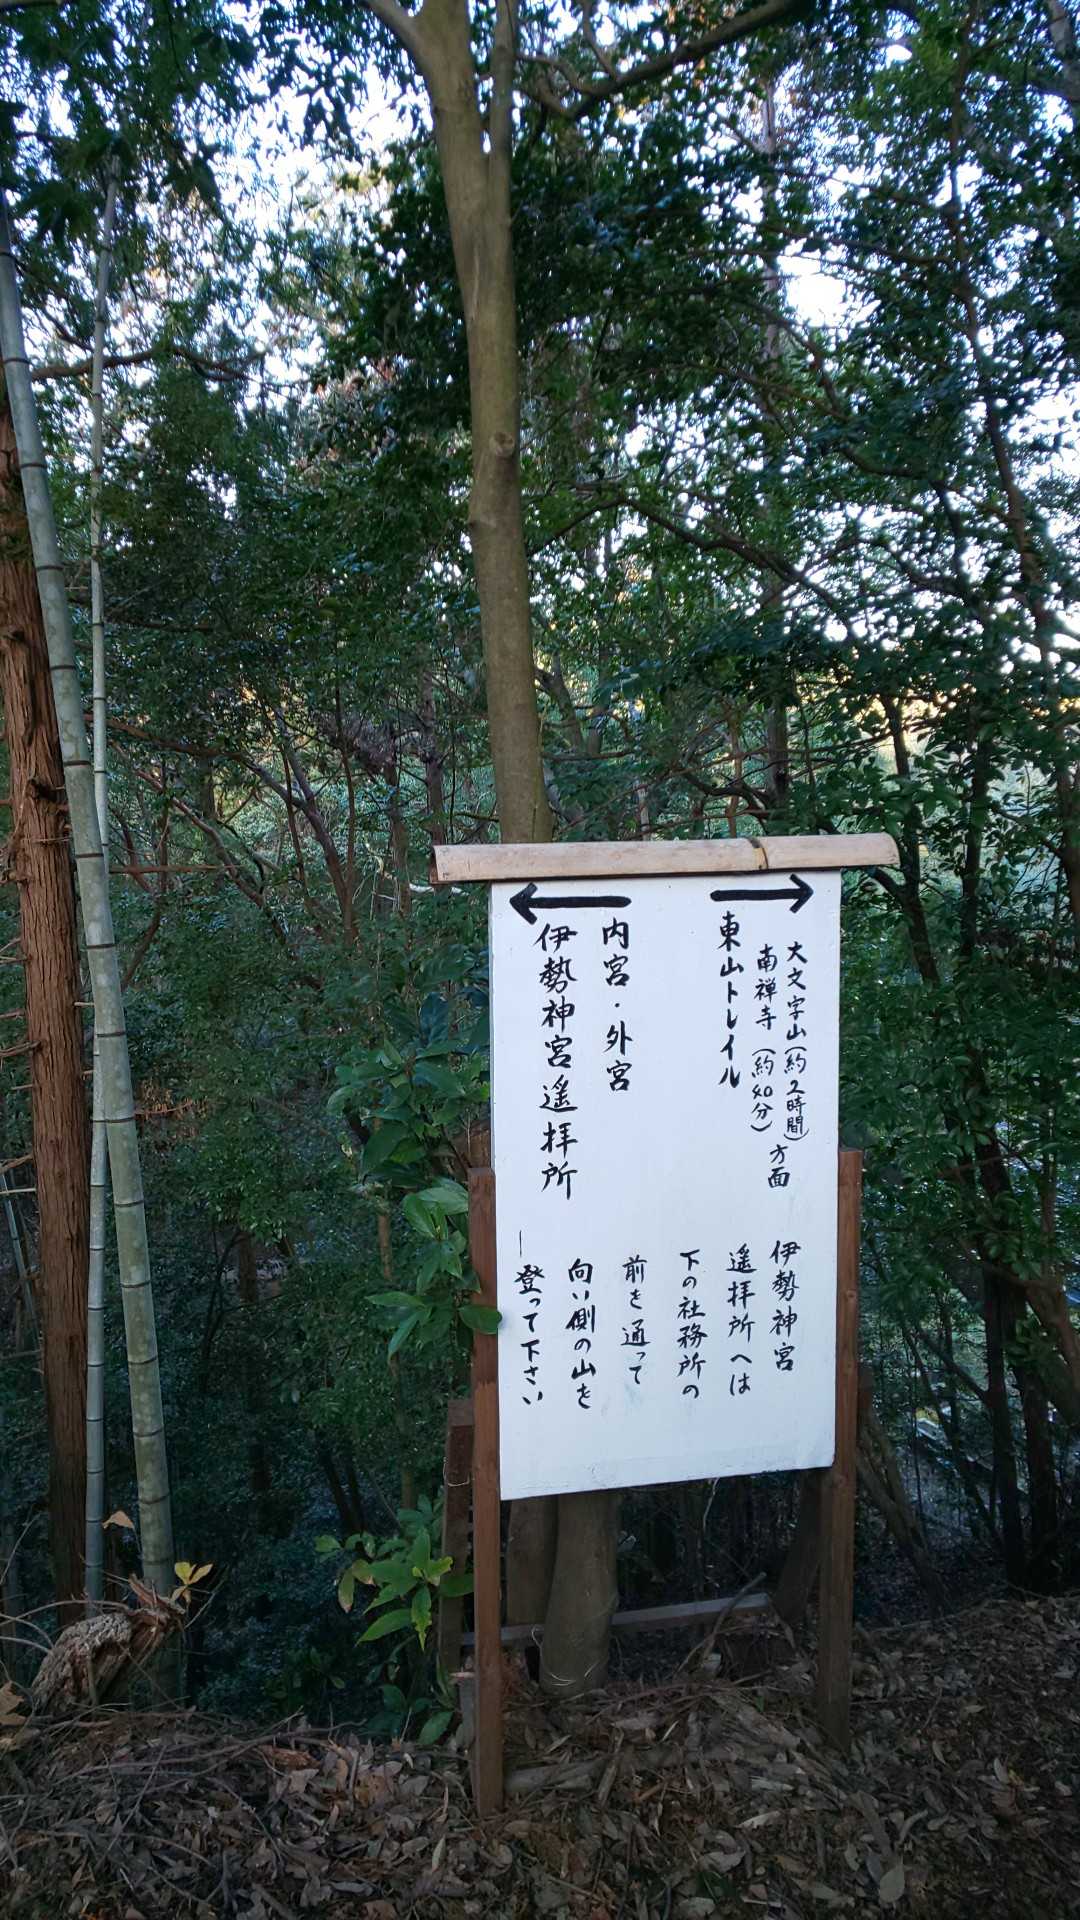 大文字山(約2時間)方面
南禅寺(約40分)
東山トレイル
内宮・外宮
伊勢神宮遥拝所
伊勢神宮
遥拝所へは
下の社務所の
前を通って
向い側の山を
登って下さい